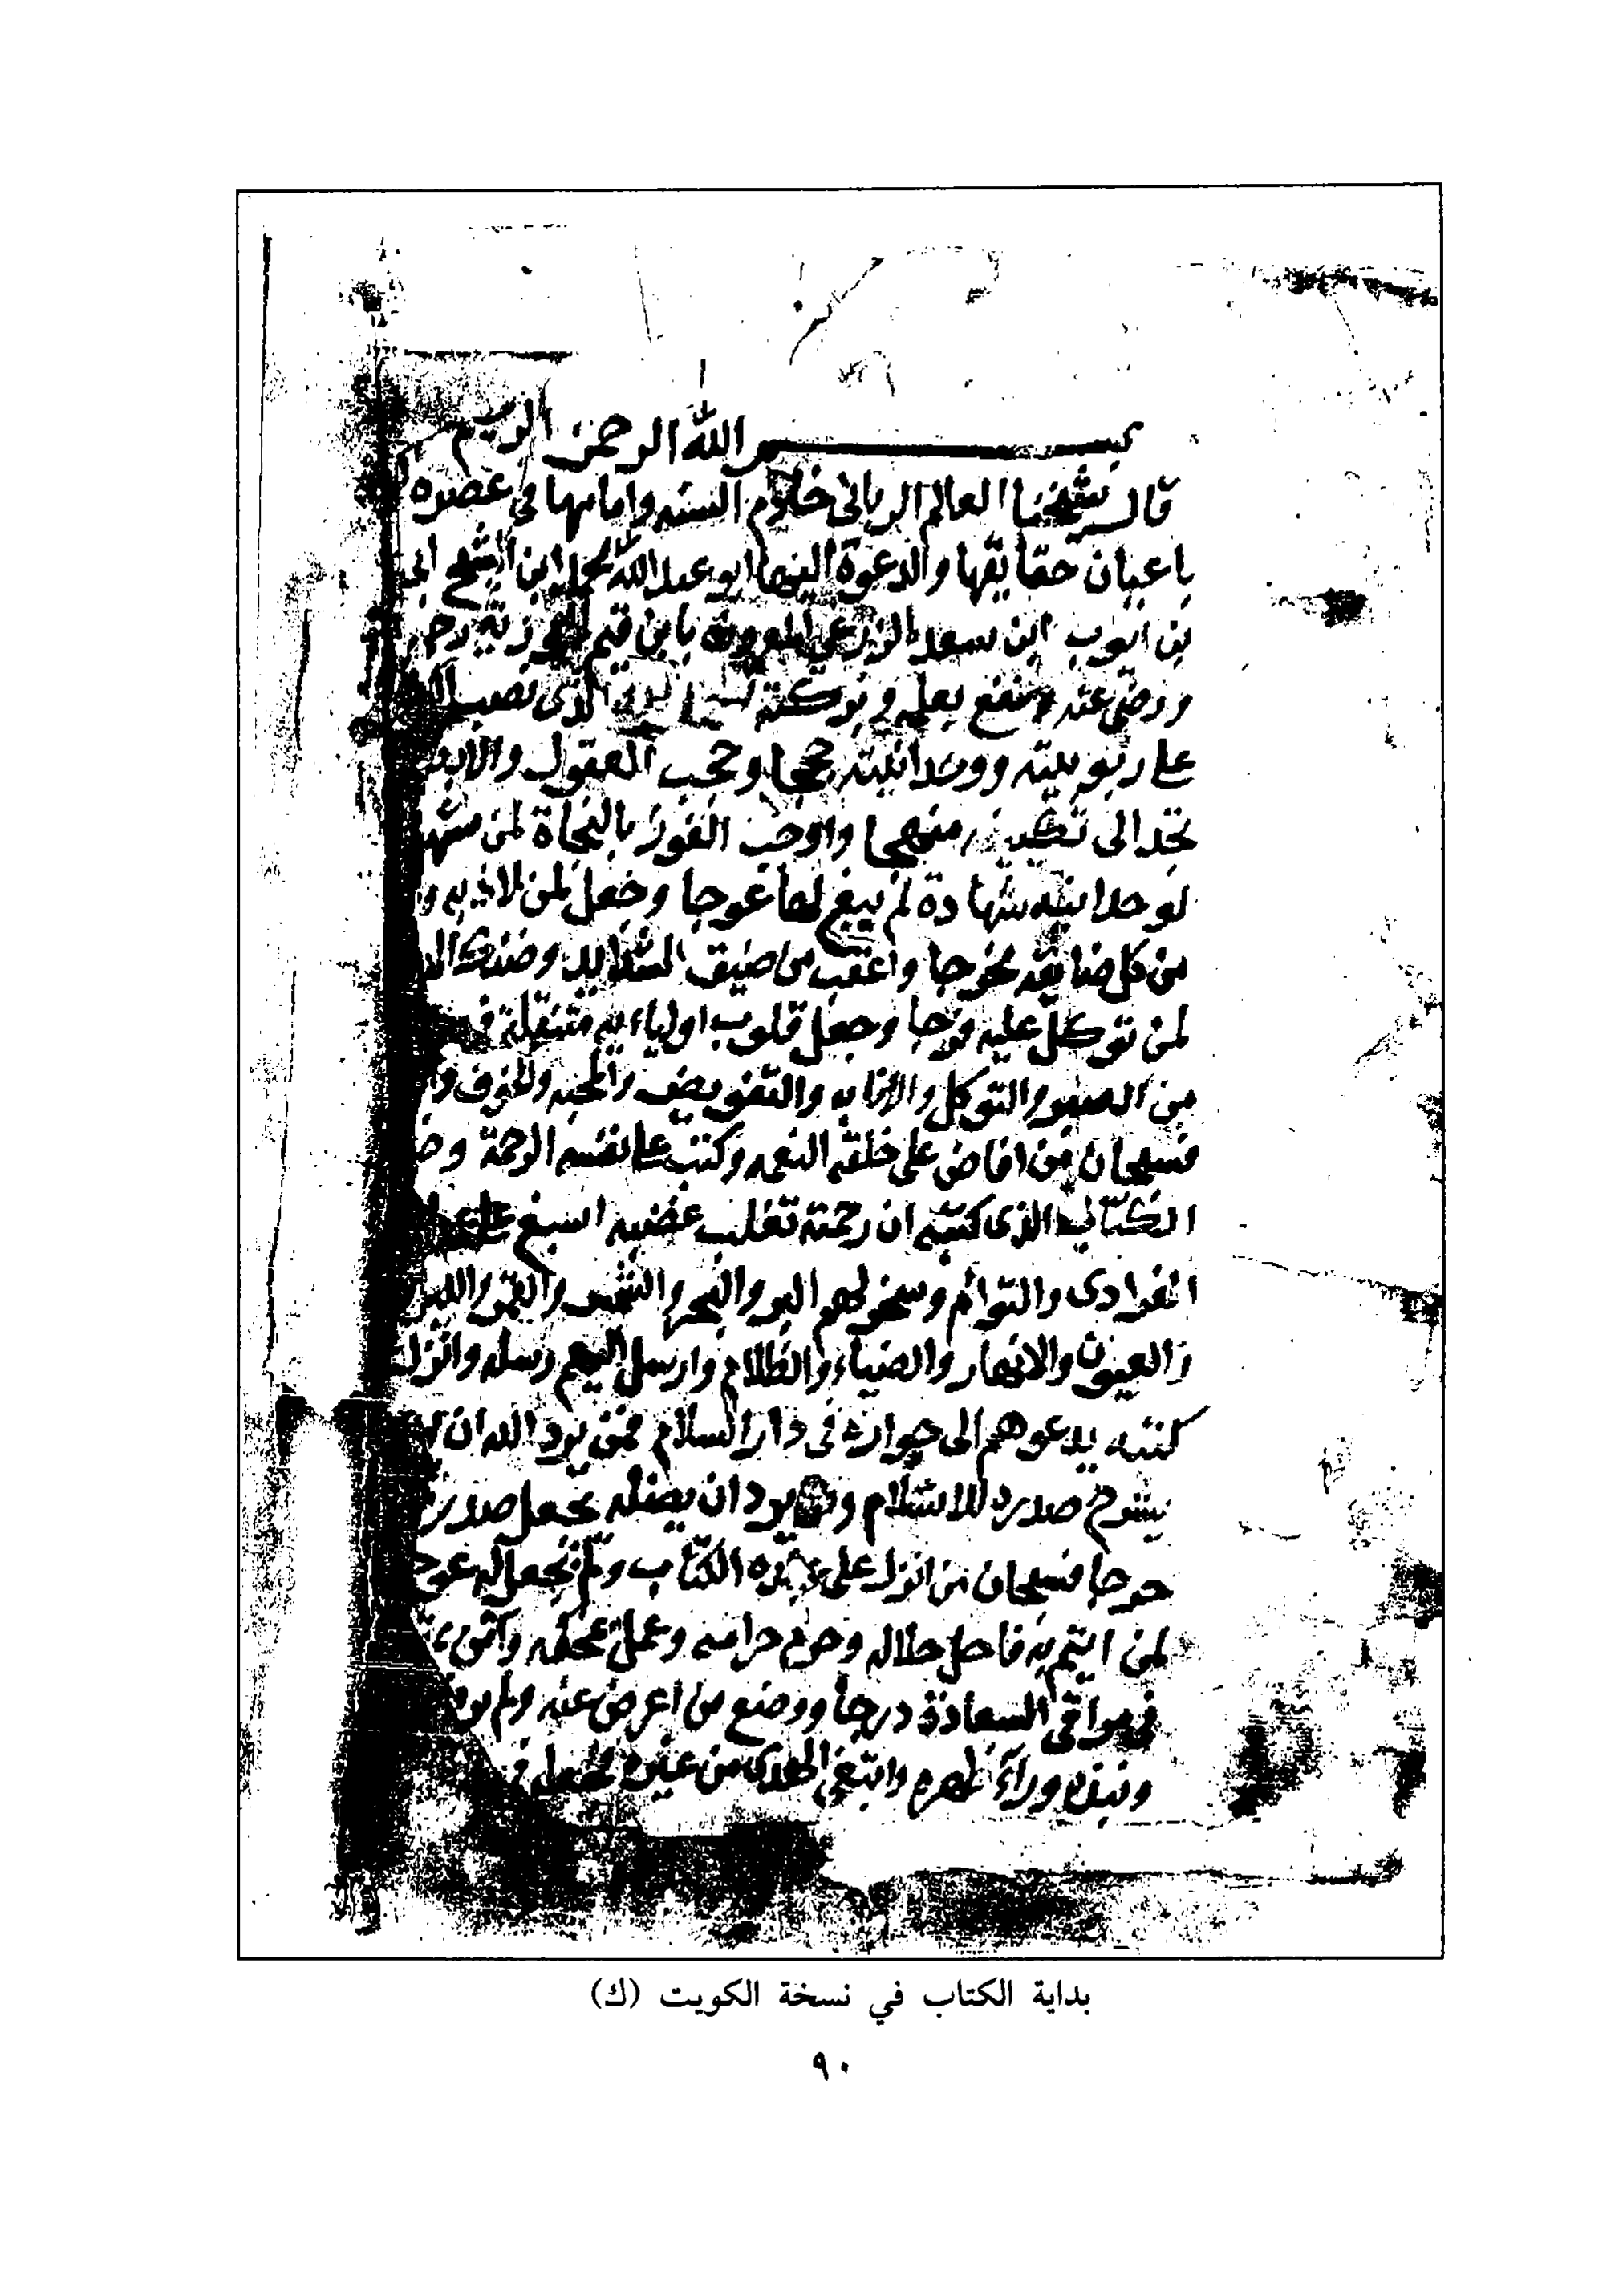 بسم الله الرحمن الرحيم
قال شيخنا العالم الرباني خادم السنه وامامها في عصره
باعيان حقايقها والدعوة اليها ابو عبد الله محمد ابن الشيخ ابي
بن ايوب ابن سعد الزرعي المعروف بابن قيم الجوزية رحمه
ورضي عنه ونفع بعلمه وبركته الذي نصب
على ربوبيته ووحدانيته حججا وحجب العقول والابصار
تجد الى تكييفه منهجا واوجب الفوز بالنجاة لمن شهد
لوحدانيته شهادة لم يبغ لها عوجا وجعل لمن لاذ به و
من كل ضايقه مخرجا واعقب من ضيق الشدايد وضنك الا
لمن توكل عليه فرجا وجعل قلوب اولياءيه متنقلة في
من الصبر والتوكل والانابه والتفويض والمحبه والخوف وا
فسبحان من افاض على خلقه النعمه وكتب على نفسه الرحمة وض
الكتاب الذي كتبه ان رحمته تغلب غضبه اسبغ على
الفرادى والتوام وسخر لهم البر والبحر والشمس والقمر والليل
والعيون والانهار والضياء والظلام وارسل اليهم رسله وانزل
كتبه يدعوهم الى جواره في دار السلام فمن يرد الله ان
يشرح صدره للاسلام ومن يرد ان يضله يجعل صدره
حرجا فسبحان من انزل على عبده الكتاب ولم يجعل له عوجا
لمن ايتم به فاحل حلاله وحرم حرامه وعمل بمحكمه وآمن
في مراقي السعادة درجا ووضع من اعرض عنه ولم
ونبذه وراء ظهره وابتغى الهدى من غيره فجعله في
بداية الكتاب في نسخة الكويت (ك)
٩٠